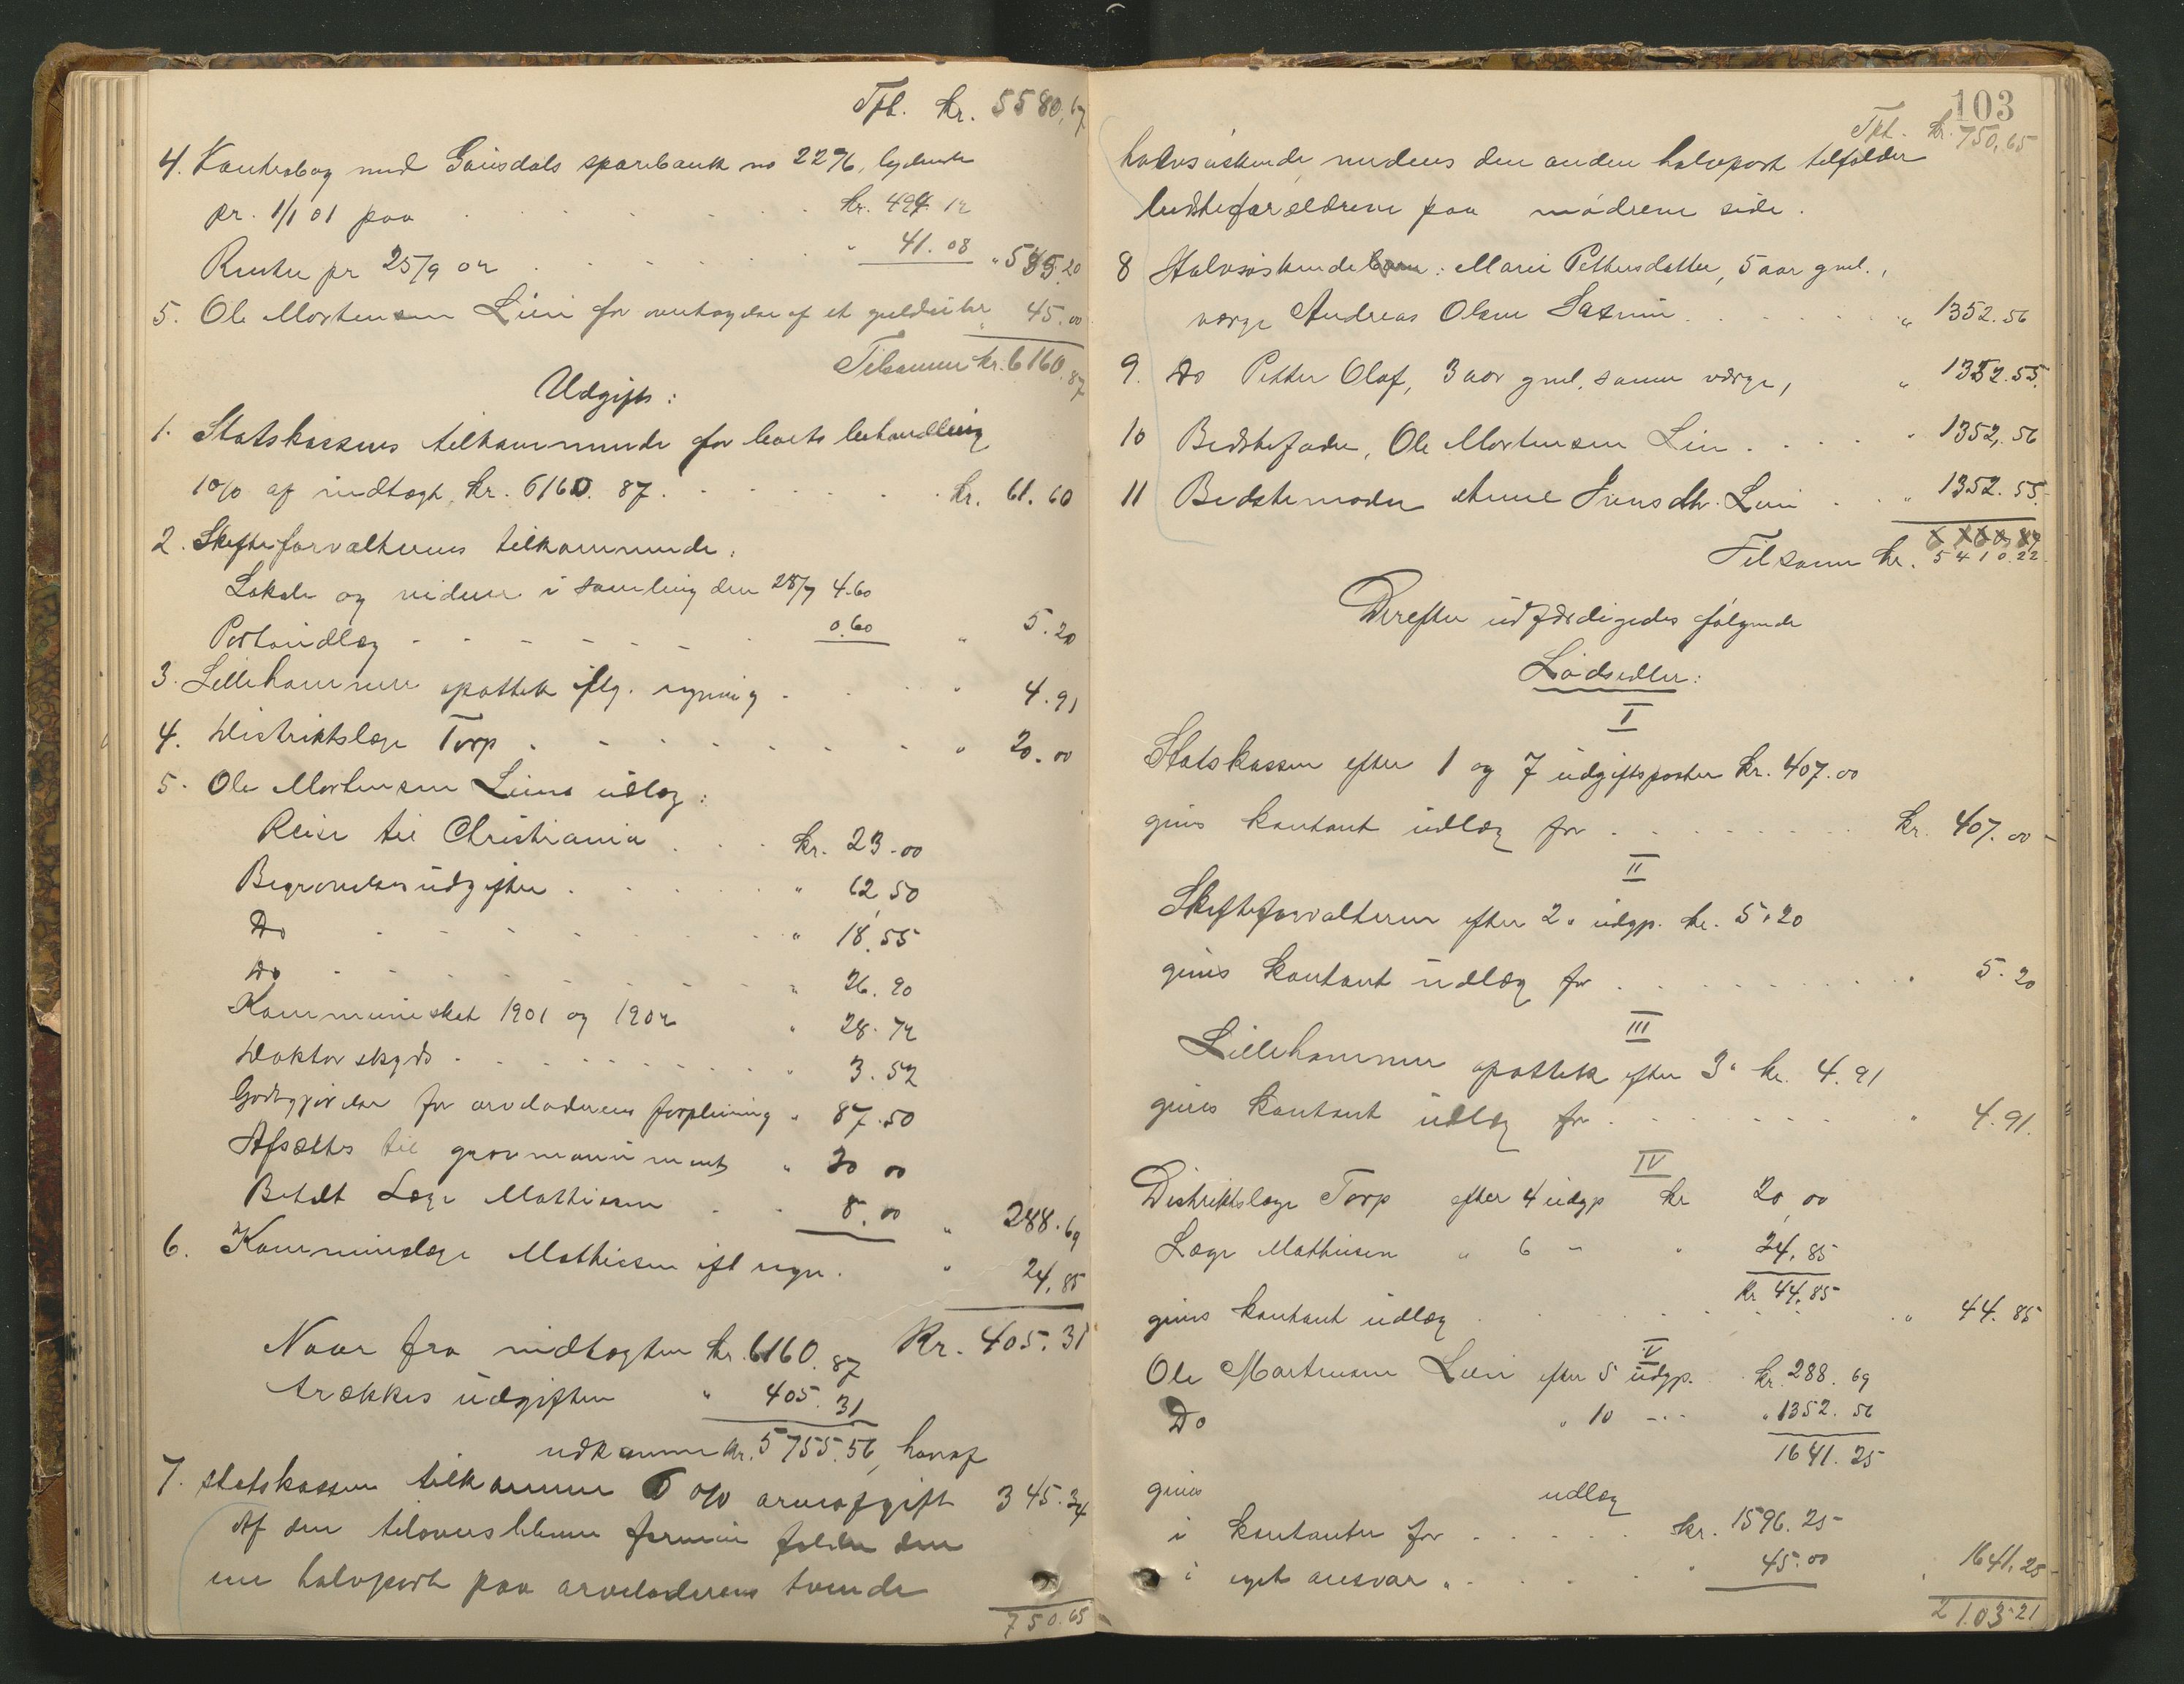 Tpt. kr. 5580,67
4. Kontrabog med Gausdals sparebank no 2276, lydende
pr. 1/1 01 paa . . . . . . kr. 494.12
Renter pr 25/9 02 . . . . . . " 41.08 " 535.20
5. Ole Mortensen Lien for overtagelse af et guldur kr 45.00
Tilsammen kr. 6160.87
Udgift:
1. Statskassens tilkommende for boets behandling
1 0/0 af indtægt, kr. 6160.87 . . . . . . kr. 61.60
2. Skifteforvalterens tilkommende:
Lokale og vidner i samling den 25/9 4.60
Portoudlæg - - - - - - 0.60 " 5.20
3. Lillehammers apothek iflg. regning . . . " 4.91
4. Distriktslæge Torp . - - - - - . " 20.00
5. Ole Mortensen Liens udlæg:
Reise til Christiania . . . kr. 23.00
Begravelsesudgifter . . . . . " 62,50
Do - - - - - . " 18.55
Do - - - - - - " 26.90
Kommuneskat 1901 og 1902 " 28.72
Doktorskyds . . . . . . . . " 3.52
Godtgjørelse for arveladerens forpleining " 87.50
Afsættes til gravmonument " 30 00
Betalt Læge Mathiesen . . 8.00 " 288.69
6. Kommunelæge Mathiesen ifl regn. " 24.85
Kr. 405.31
Naar fra indtægten kr. 6160.87
trækkes udgiften " 405.31
udkommer kr. 5755.56, hvoraf
7. statskassen tilkommer 6 0/0 arveafgift 345.34
Af den tiloversblevne formue falder den
ene halvpart paa arveladerens tvende
750.65
103
Tpt. kr. 750,65
halvsøskende, medens den anden halvpart tilfalder
bedsteforældrene paa mødrene side.
8 Halvsøskendebarn: Marie Pettersdatter, 5 aar gml.,
værge Andreas Olsen . . . . . " 1352.56
9. Do Petter Olaf, 3 aar gml. samme værge, " 1352.55.
10 Bedstefader, Ole Mortensen Lien . . . . " 1352,56
11 Bedstemoder Anne Iversdtr. Lien . . " 1352.55
Tilsammen kr. 5410.22
Derefter udfærdigedes følgende
Lodsedler:
I
Statskassen efter 1 og 7 udgiftsposter kr. 407.00
gives kontant udlæg for . . . . . . . . kr. 407.00
II
Skifteforvalteren efter 2. udgp. kr. 5.20
gives kontant udlæg for . . . . . . . . . . 5.20
III
Lillehammer apothek efter 3" kr. 4.91
gives kontant udlæg for . . . . . . . " 4.91.
IV
Distriktslæge Torp efter 4 udgp kr 20,00
Læge Mathiesen " 6 - " 24.85
kr 44.85
gives kontant udlæg . . . . . . . . " 44.85
V
Ole Mortensen Lien efter 5 udgp. kr. 288.69
Do " 10 - . - " 1352.56
1641.25
gives udlæg
i kontanter for . . . . . kr. 1596.25
i eget ansvar " . . . . " 45.00 " 1641,25
2103.21